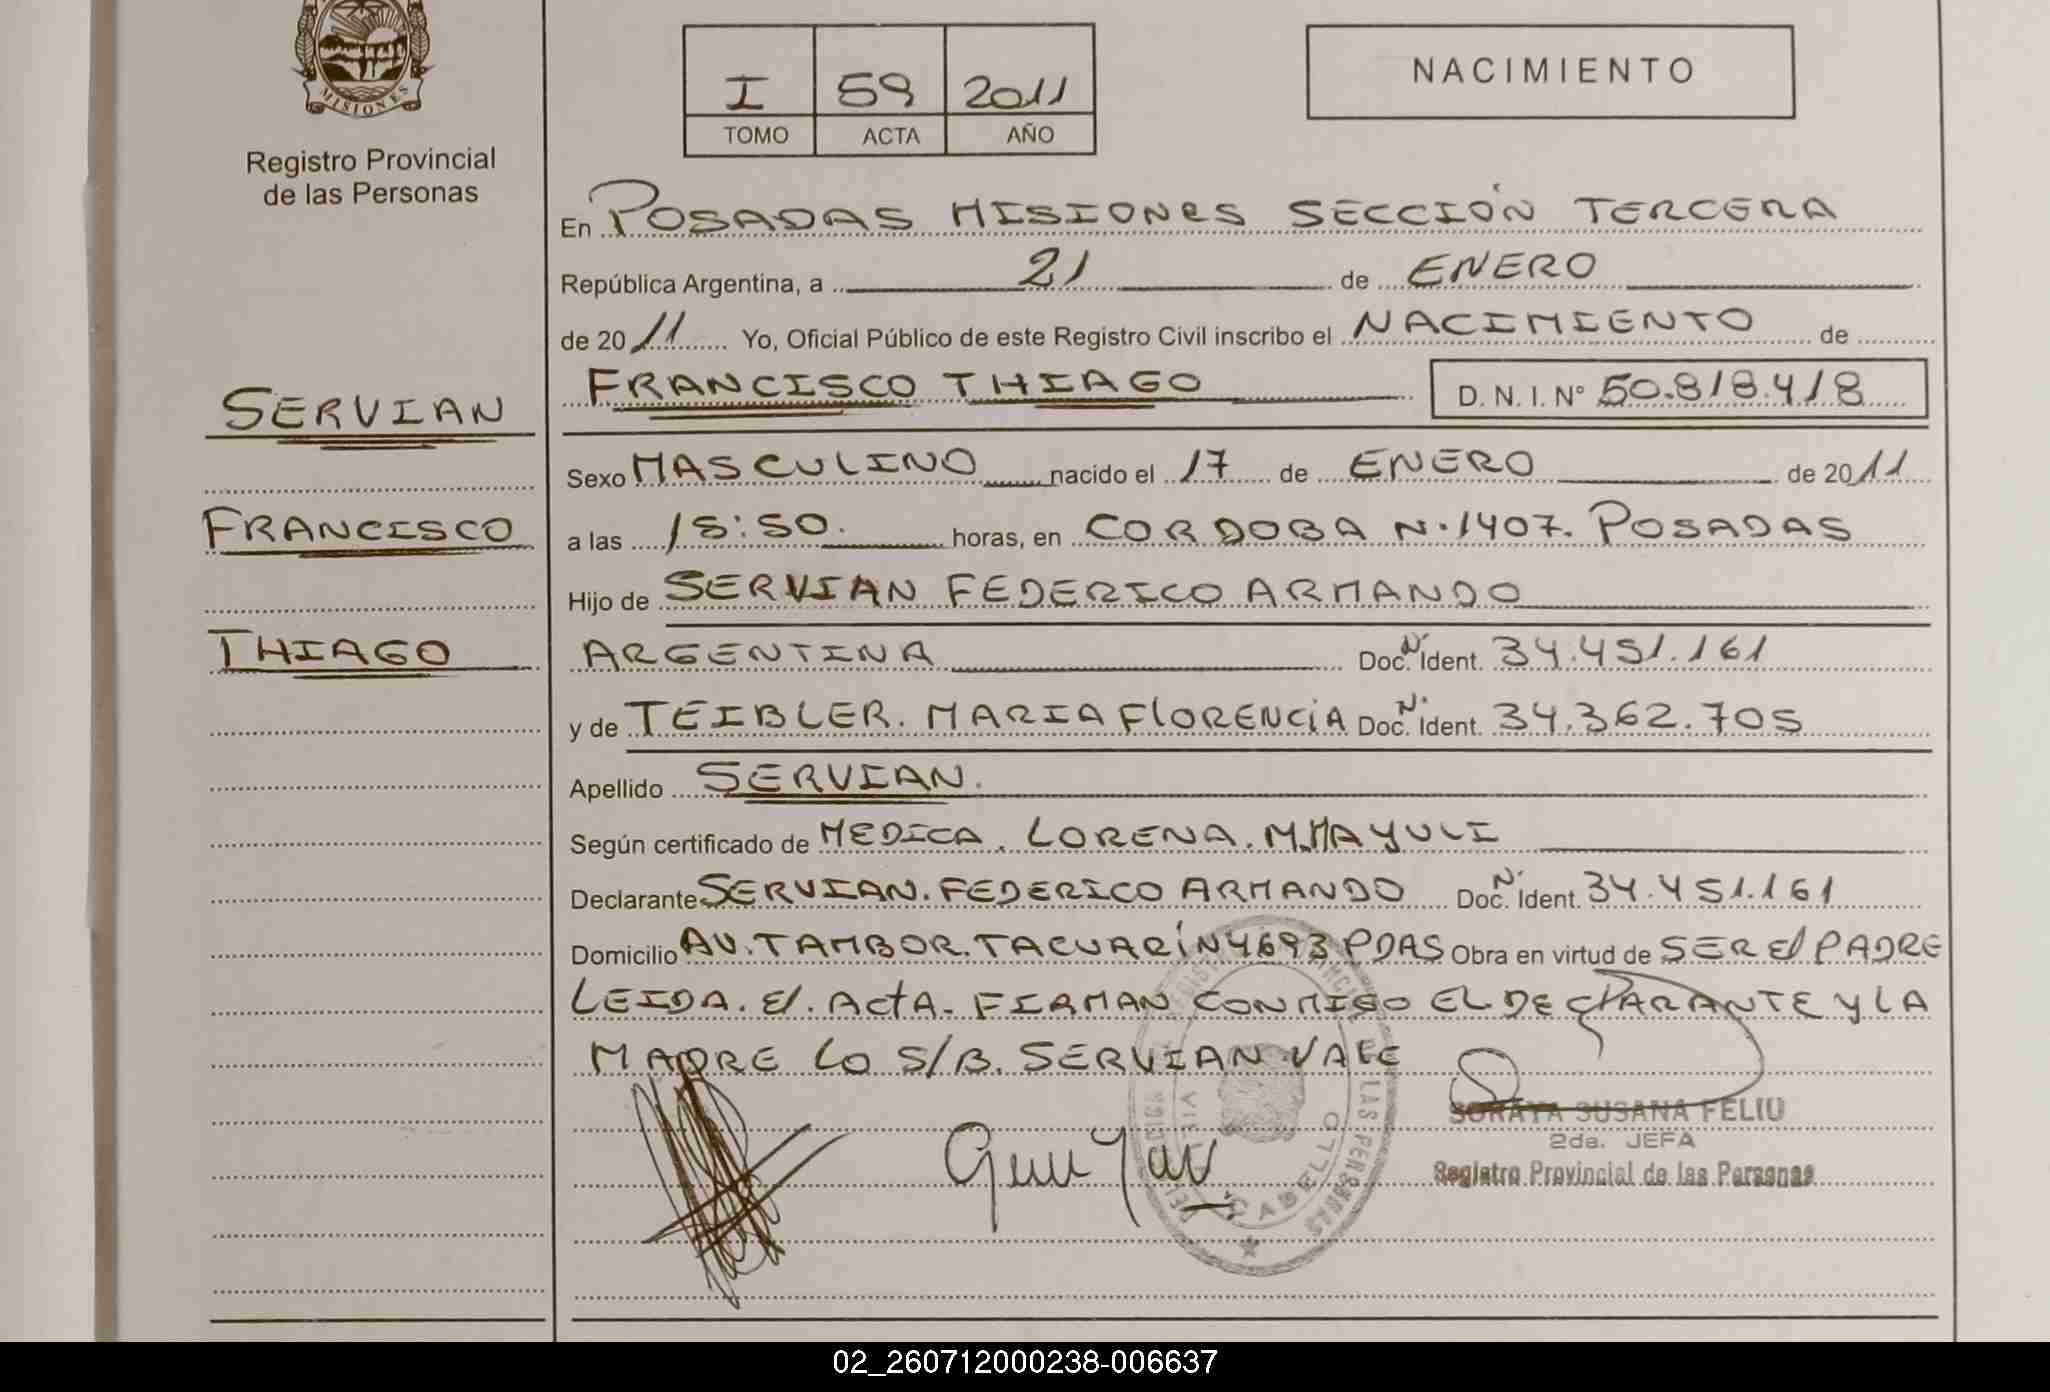 MISIONES
Registro Provincial
de las Personas
I 59 2011
TOMO ACTA AÑO
NACIMIENTO
En POSADAS MISIONES SECCIÓN TERCERA
República Argentina, a 21 de ENERO
de 2011 Yo, Oficial Público de este Registro Civil inscribo el NACIMIENTO de
FRANCISCO THIAGO D. N. I. N° 50.818.418
SERVIAN
FRANCISCO
THIAGO
Sexo MASCULINO nacido el 17 de ENERO de 2011
a las 18:50. horas, en CORDOBA N. 1407. POSADAS
Hijo de SERVIAN FEDERICO ARMANDO
ARGENTINA Doc. N. Ident. 34.451.161
y de TEIBLER. MARIA FlORENCiA Doc. N. Ident. 34.362.705
Apellido SERVIAN.
Según certificado de MEDICA. LORENA. M. MAYULI
Declarante SERVIAN. FEDERICO ARMANDO Doc. N. Ident. 34.451.161
Domicilio AV. TAMBOR. TACUARÍ N 4693 PDAS Obra en virtud de SER El PADRE
LEIDA. El. ActA. FIRMAN CONMIGO EL DECLARANTE Y LA
MADRE LO S/B. SERVIAN VALE
SORAYA SUSANA FELIU
2da. JEFA
Registro Provincial de las Personas
VILLA CABELLO
02_260712000238-006637